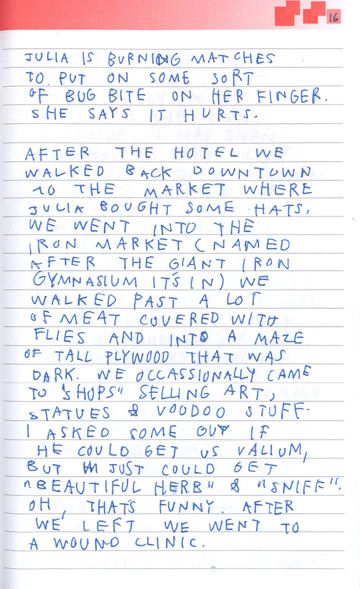 16
JULIA IS BURNING MATCHES
TO PUT ON SOME SORT
OF BUG BITE ON HER FINGER.
SHE SAYS IT HURTS.
AFTER THE HOTEL WE
WALKED BACK DOWNTOWN
TO THE MARKET WHERE
JULIA BOUGHT SOME HATS,
WE WENT INTO THE
IRON MARKET (NAMED
AFTER THE GIANT IRON
GYMNASIUM IT'S IN) WE
WALKED PAST A LOT
OF MEAT COVERED WITH
FLIES AND INTO A MAZE
OF TALL PLYWOOD THAT WAS
DARK. WE OCCASSIONALLY CAME
TO "SHOPS" SELLING ART,
STATUES & VOODOO STUFF.
I ASKED SOME GUY IF
HE COULD GET US VALIUM,
BUT JUST COULD GET
"BEAUTIFUL HERB" & "SNIFF".
OH, THAT'S FUNNY. AFTER
WE LEFT WE WENT TO
A WOUND CLINIC.